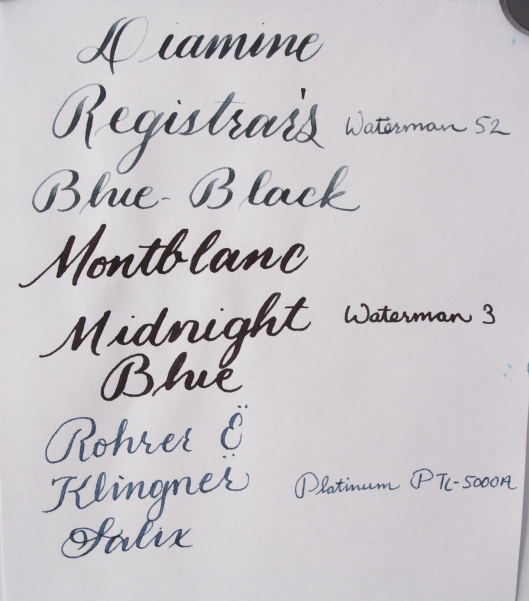 Diamine
Registrar's Waterman 52
Blue-Black
Montblanc
Midnight Waterman 3
Blue
Rohrer Ë
Klingner Platinum PTL-5000A
Salix